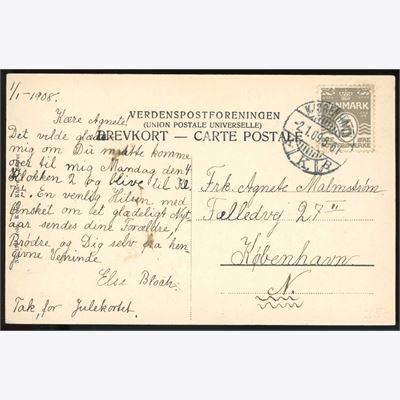 1/1-1908.
Kære Agnete!
Det vilde glæde
mig om Du maatte komme
over til mig Mandag den 4
Klokken 2 og blive til Kl
En venlig Hilsen med
Ønsket om et glædeligt Nyt
aar sendes dine Forældre,
Brødre og Dig selv fra hen-
givne Veninde
Else Bloch.
Tak, for Julekortet.
VERDENSPOSTFORENINGEN
(UNION POSTALE UNIVERSELLE)
BREVKORT — CARTE POSTALE
DANMARK
KJØBENHAVN
2.1.09
K. B.
Frk. Agnete Malmstrøm
Tølledvej 27 II
København
N.